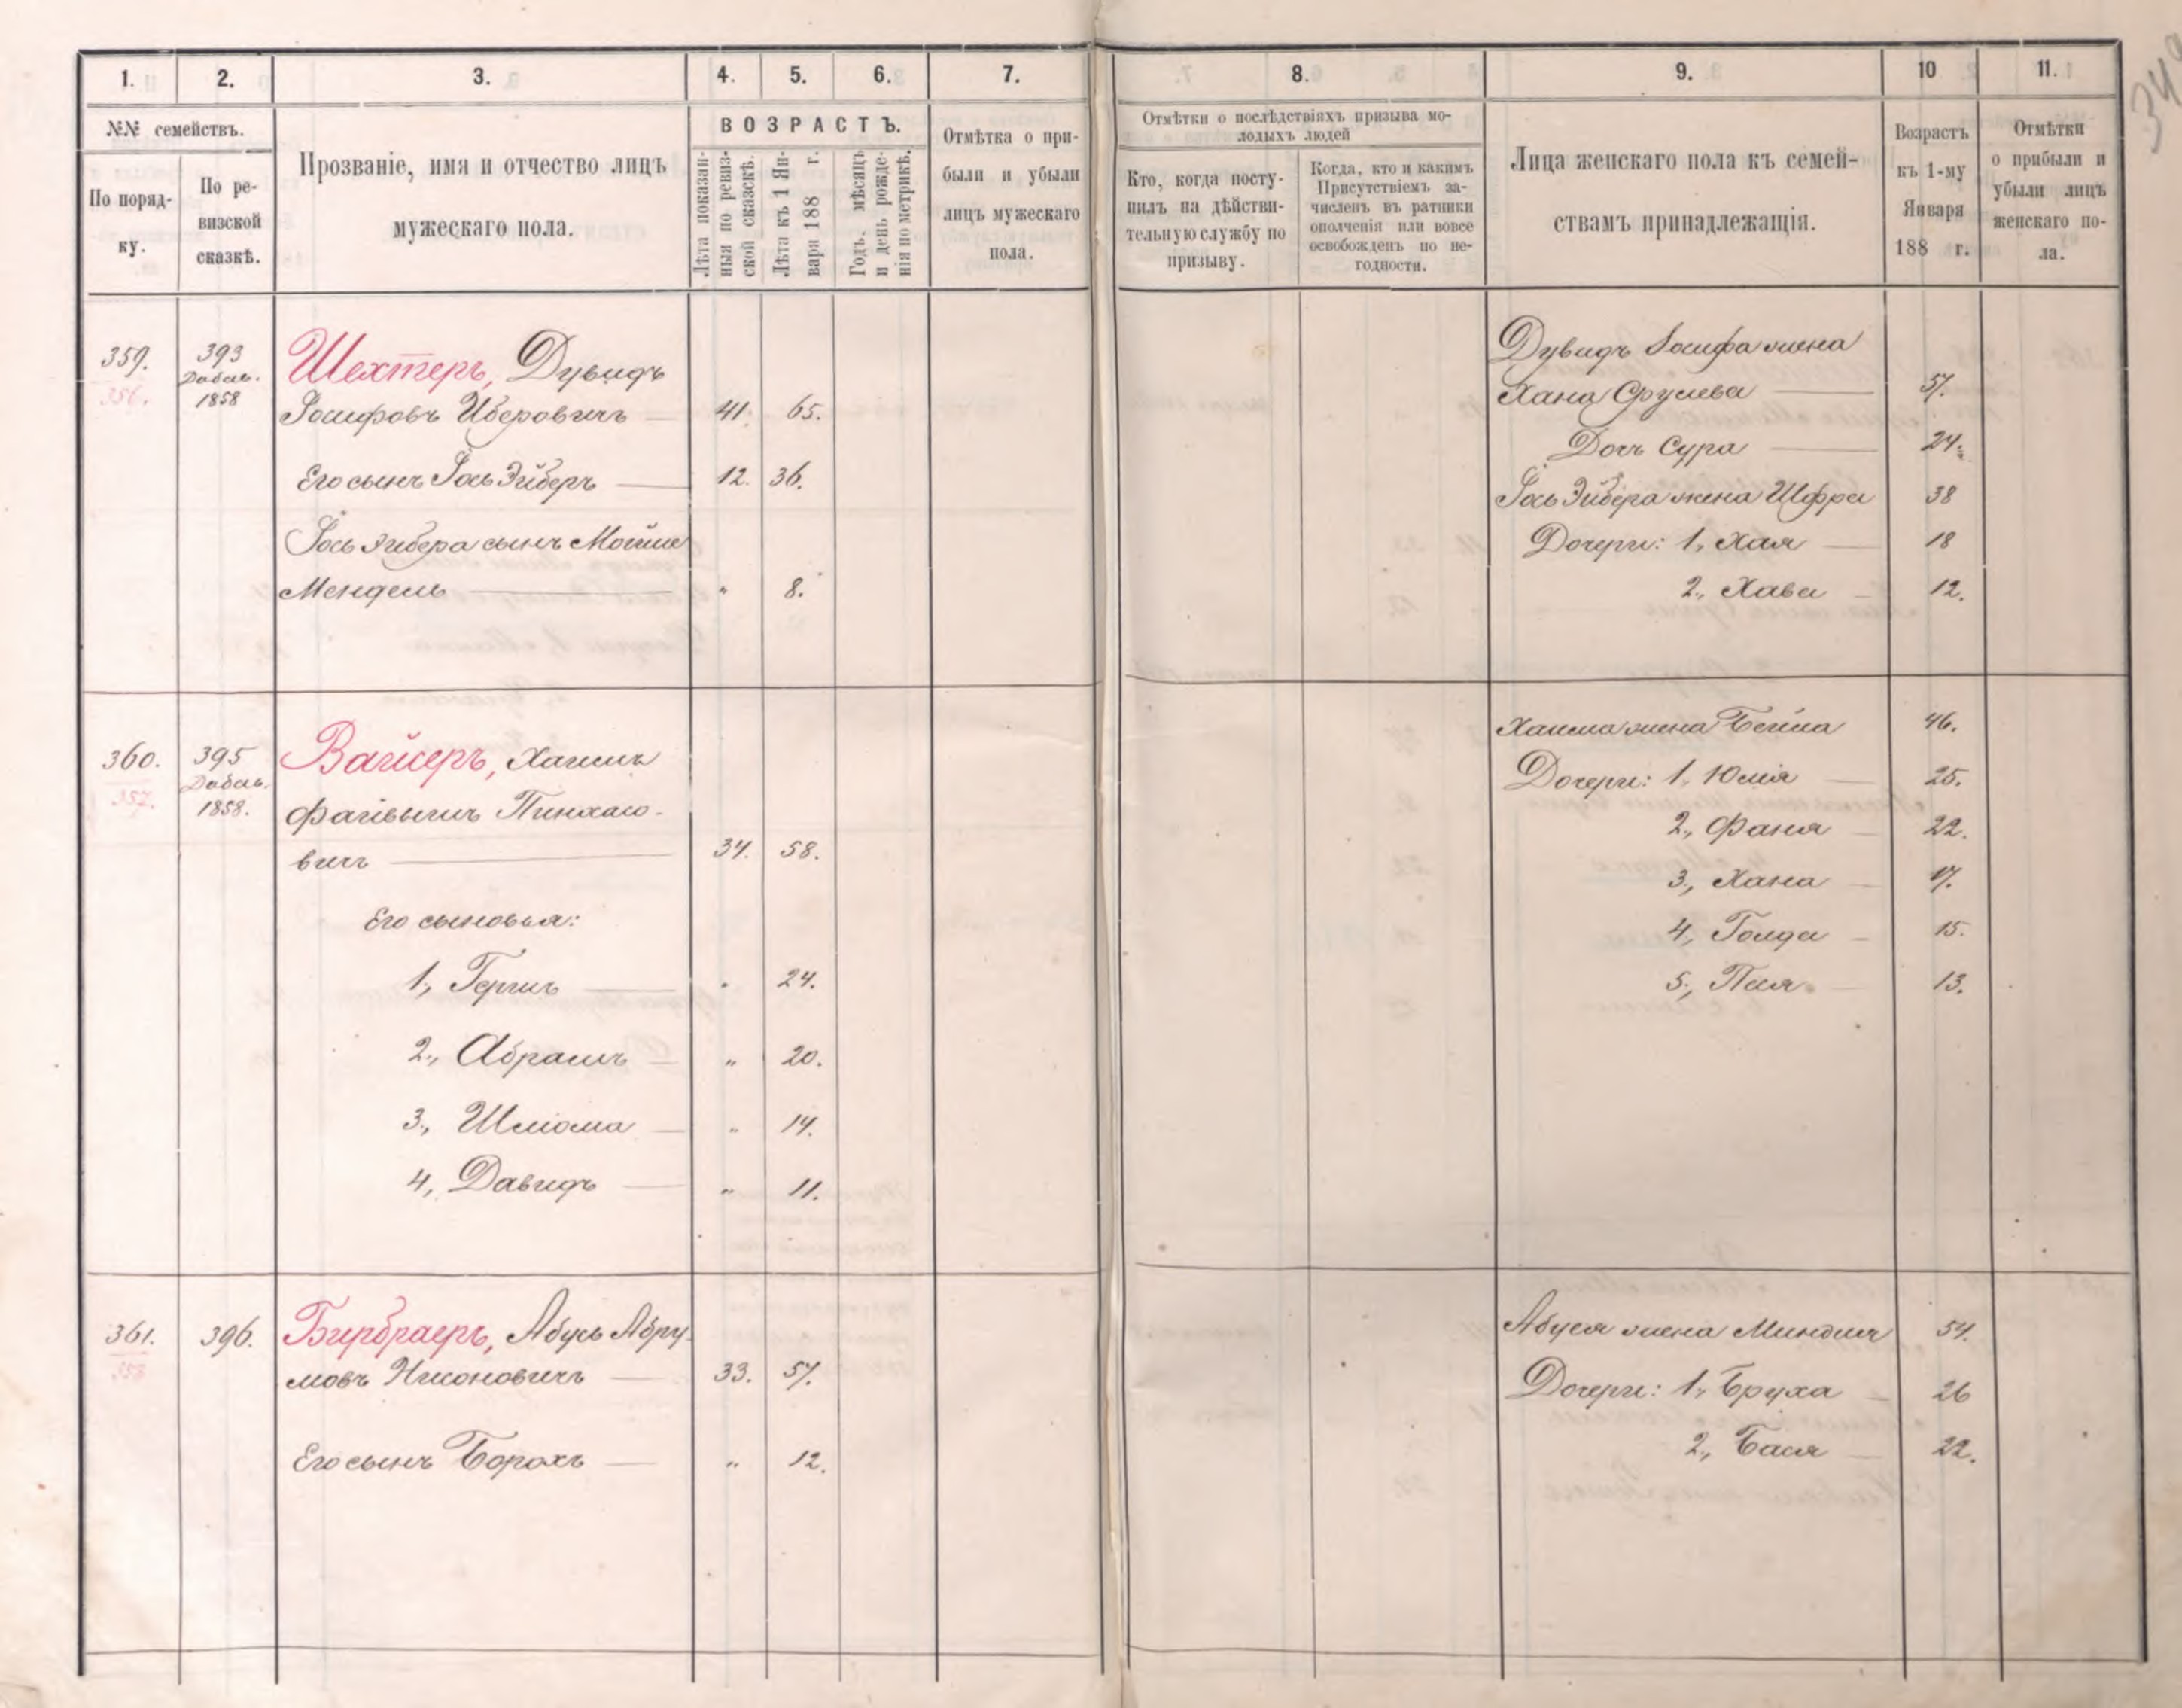 1. 2. 3. 4. 5. 6. 7. 8. 9. 10 11.
№№ семействъ.
По поряд-
ку.
По ре-
визской
сказкѣ.
Прозваніе, имя и отчество лицъ
мужескаго пола.
ВОЗРАСТЪ.
Лѣта показан-
ныя по ревиз-
ской сказкѣ.
Лѣта къ 1 Ян-
варя 188 г.
Годъ, мѣсяцъ
и день рожде-
нія по метрикѣ.
Отмѣтка о при-
были и убыли
лицъ мужескаго
пола.
Отмѣтки о послѣдствіяхъ призыва мо-
лодыхъ людей
Кто, когда посту-
пилъ на дѣйстви-
тельную службу по
призыву.
Когда, кто и какимъ
Присутствіемъ за-
численъ въ ратники
ополченія или вовсе
освобожденъ по не-
годности.
Лица женскаго пола къ семей-
ствамъ принадлежащія.
Возрастъ
къ 1-му
Января
188 г.
Отмѣтки
о прибыли и
убыли лицъ
женскаго по-
ла.
359. 393 Шехтеръ, Дувидъ
356. Добав.
1858
Іосифовъ Иберовичъ 41. 65.
Его сынъ Іось Эйберъ 12. 36.
Іось Эйбера сынъ Мойше
Мендель " 8.
Дувидъ Іосифа жена
Хана Срулева 57.
Дочь Сура 24.
Іось Эйбера жена Шфра 38
Дочери: 1, Хая 18
2, Хава 12.
360. 395 Вайсеръ, Хаимъ
357. Добав.
1858.
Файвышъ Пинхасо-
вичъ 34. 58.
Его сыновья:
1, Гершъ " 24.
2, Абрамъ " 20.
3, Шліома " 14.
4, Давидъ " 11.
Хаима жена Бейла 46.
Дочери: 1, Юлія 25.
2, Фаня 22.
3, Хана 17.
4, Голда 15.
5, Пая 13.
361. 396. Бирбраеръ, Абусь Абру-
358
мовъ Нисоновичъ 33. 57.
Его сынъ Борохъ " 12.
Абуся жена Миндля 54.
Дочери: 1, Бруха 26
2, Бася 22.